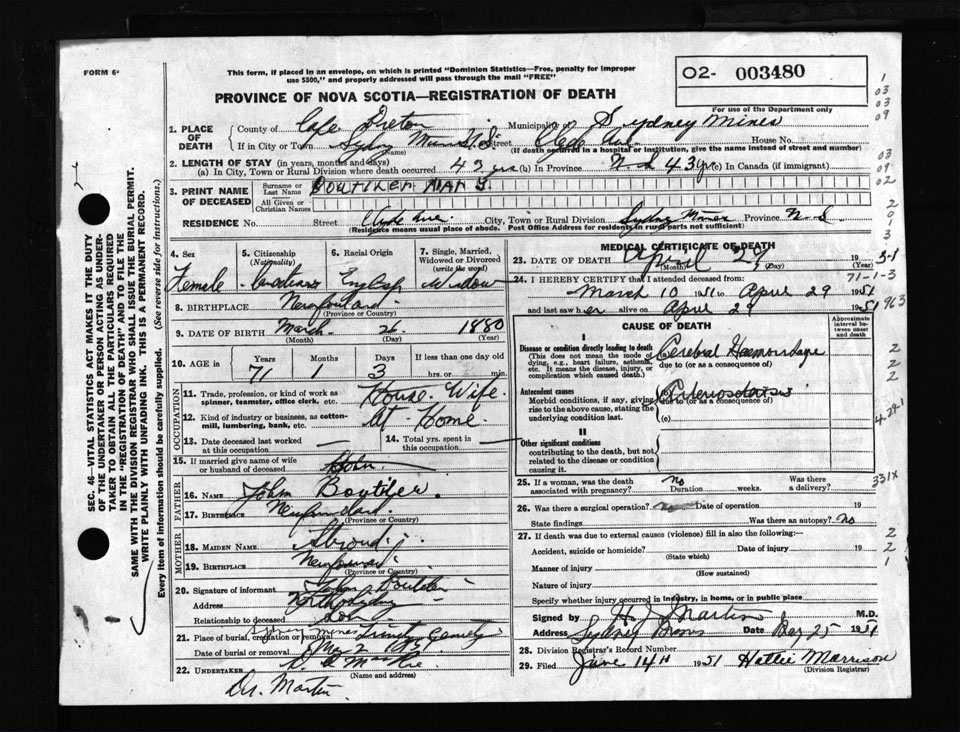 FORM 6
This form, if placed in an envelope, on which is printed "Dominion Statistics—Free, penalty for improper
use $300," and properly addressed will pass through the mail "FREE"
O2- 003480
For use of the Department only
PROVINCE OF NOVA SCOTIA—REGISTRATION OF DEATH
1. PLACE OF DEATH
County of Cape Breton Municipality of Sydney Mines
If in City or Town Sydney Mines N.S. (Name) Street Clyde Ave. House No.
(If death occurred in a hospital or institution, give the name instead of street and number)
2. LENGTH OF STAY (in years, months and days)
(a) In City, Town or Rural Division where death occurred 43 yrs (b) in Province N.S 43 yrs (c) in Canada (if immigrant)
3. PRINT NAME OF DECEASED
Surname or Last Name BOUTILER MARY
All Given or Christian Names
RESIDENCE No. Street Clyde Ave. City, Town or Rural Division Sydney Mines Province N.S.
(Residence means usual place of abode. Post Office Address for residents in rural parts not sufficient)
4. Sex
Female
5. Citizenship (Nationality)
6. Racial Origin
English
7. Single, Married, Widowed or Divorced (write the word)
Widow
8. BIRTHPLACE Newfoundland
9. DATE OF BIRTH March 26 1880
(Month) (Day) (Year)
10. AGE in Years Months Days If less than one day old
71 1 3 hrs. or min.
OCCUPATION
11. Trade, profession, or kind of work as spinner, teamster, office clerk, etc. House Wife.
12. Kind of industry or business, as cotton-mill, lumbering, bank, etc. At Home.
13. Date deceased last worked at this occupation —
14. Total yrs. spent in this occupation —
15. If married give name of wife or husband of deceased John
FATHER
16. Name John Boutiler.
17. Birthplace Newfoundland.
(Province or Country)
MOTHER
18. Maiden Name
19. Birthplace Newfoundland
(Province or Country)
20. Signature of informant John Boutiler
Address North Sydney
Relationship to deceased Son
21. Place of burial, cremation or removal Sydney Mines Trinity Cemetery
Date of burial or removal May 2 1951
22. UNDERTAKER
(Name and address)
Dr. Martin.
MEDICAL CERTIFICATE OF DEATH
23. DATE OF DEATH April 29 19
(Month) (Day)
24. I HEREBY CERTIFY that I attended deceased from:
March 10 1951 to April 29 1951
and last saw her alive on April 29 1951
CAUSE OF DEATH
Approximate interval between onset and death
I
Disease or condition directly leading to death
(This does not mean the mode of dying, e.g., heart failure, asthenia, etc. It means the disease, injury, or complication which caused death.)
(a) Cerebral Haemorrhage
due to (or as a consequence of)
Antecedent causes
Morbid conditions, if any, giving rise to the above cause, stating the underlying condition last.
Arteriosclerosis
due to (or as a consequence of)
(c)
II
Other significant conditions
contributing to the death, but not related to the disease or condition causing it.
25. If a woman, was the death associated with pregnancy? no Duration weeks. Was there a delivery?
26. Was there a surgical operation? no Date of operation 19
State findings Was there an autopsy? no
27. If death was due to external causes (violence) fill in also the following:—
Accident, suicide or homicide? Date of injury 19
(State which)
Manner of injury
(How sustained)
Nature of injury
Specify whether injury occurred in industry, in home, or in public place
Signed by H J Martin M.D.
Address Sydney Mines Date 25 1951
28. Division Registrar's Record Number
29. Filed June 14th 1951 Hattie Morrison
(Division Registrar)
SEC. 46—VITAL STATISTICS ACT MAKES IT THE DUTY
OF THE UNDERTAKER OR PERSON ACTING AS UNDER-
TAKER TO OBTAIN ALL THE PARTICULARS REQUIRED
IN THE "REGISTRATION OF DEATH" AND TO FILE THE
SAME WITH THE DIVISION REGISTRAR WHO SHALL ISSUE THE BURIAL PERMIT.
WRITE PLAINLY WITH UNFADING INK. THIS IS A PERMANENT RECORD.
Every item of information should be carefully supplied. (See reverse side for instructions.)
1
03
03
09
03
09
02
2
9
1
3
3-1
71-1-3
963
2
2
2
4-29-1
331X
2
2
1